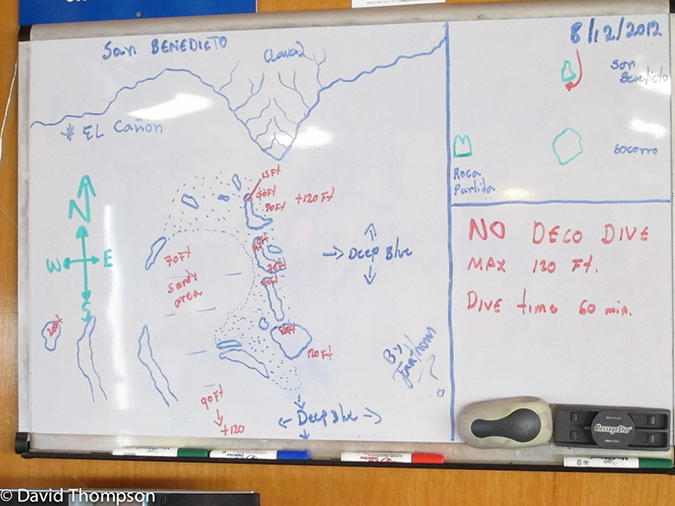 San BENEDICTO
CLavaz
# EL Cañon
N
W E
S
15Ft
+120Ft
70Ft
Sandy
area
Deep Blue
120Ft
90Ft
+120
Deep Blue
By
8/12/2012
San
Benedicto
Roca
Partida
Socorro
NO DECO DIVE
MAX 120 Ft.
DIVE time 60 min.
MessageStor
© David Thompson